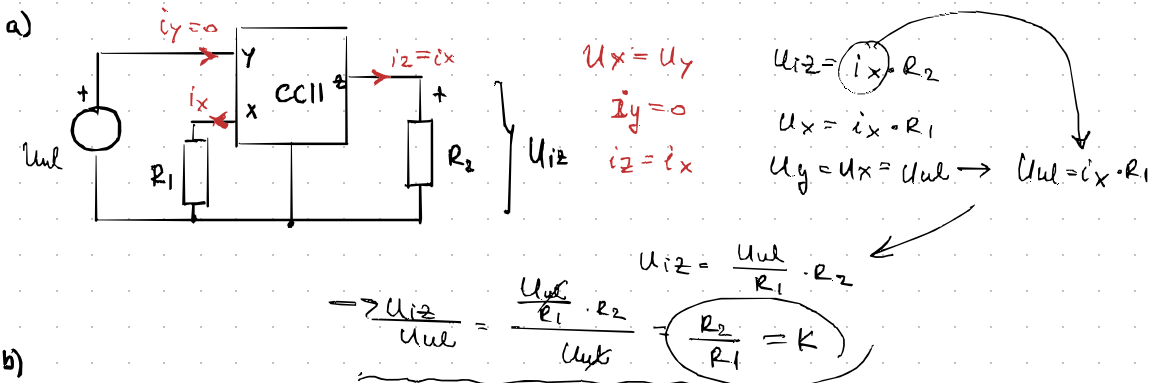 a)
iy=0
Y
CCII
z
iz=ix
+
ix
X
+
Uul
R1
R2
Uiz
Ux = Uy
iy = 0
iz = ix
Uiz = ix · R2
Ux = ix · R1
Uy = Ux = Uul → Uul = ix · R1
Uiz = Uul/R1 · R2
→ Uiz/Uul = (Uul/R1 · R2)/Uul = R2/R1 = K
b)